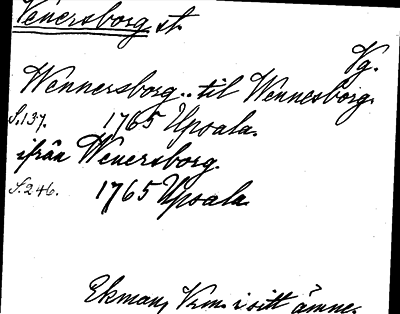 Venersborg st.
Vg.
Wennersborg .. til Wennesborg.
S. 137. 1765 Upsala.
ifrån Wenersborg.
S. 246. 1765 Upsala.
Ekman, Vrm. i sitt ämne.